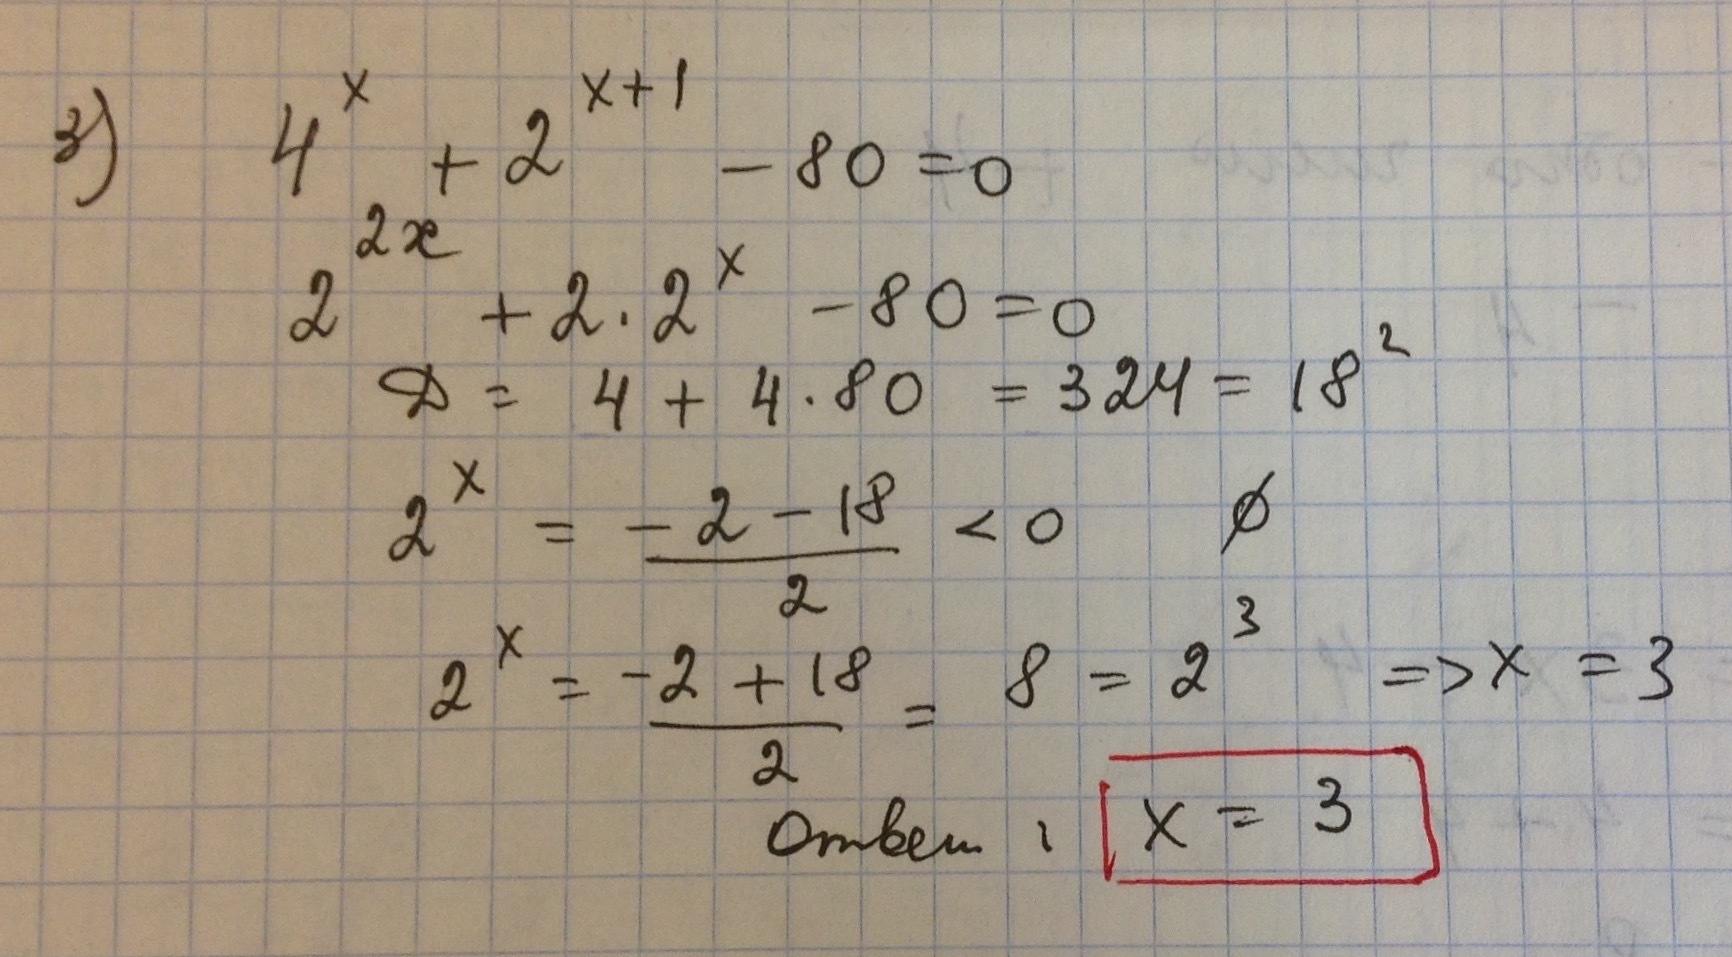 3) 4^x + 2^(x+1) - 80 = 0
2^(2x) + 2 · 2^x - 80 = 0
D = 4 + 4 · 80 = 324 = 18²
2^x = (-2 - 18)/2 < 0 ∅
2^x = (-2 + 18)/2 = 8 = 2³ => x = 3
Ответ: x = 3